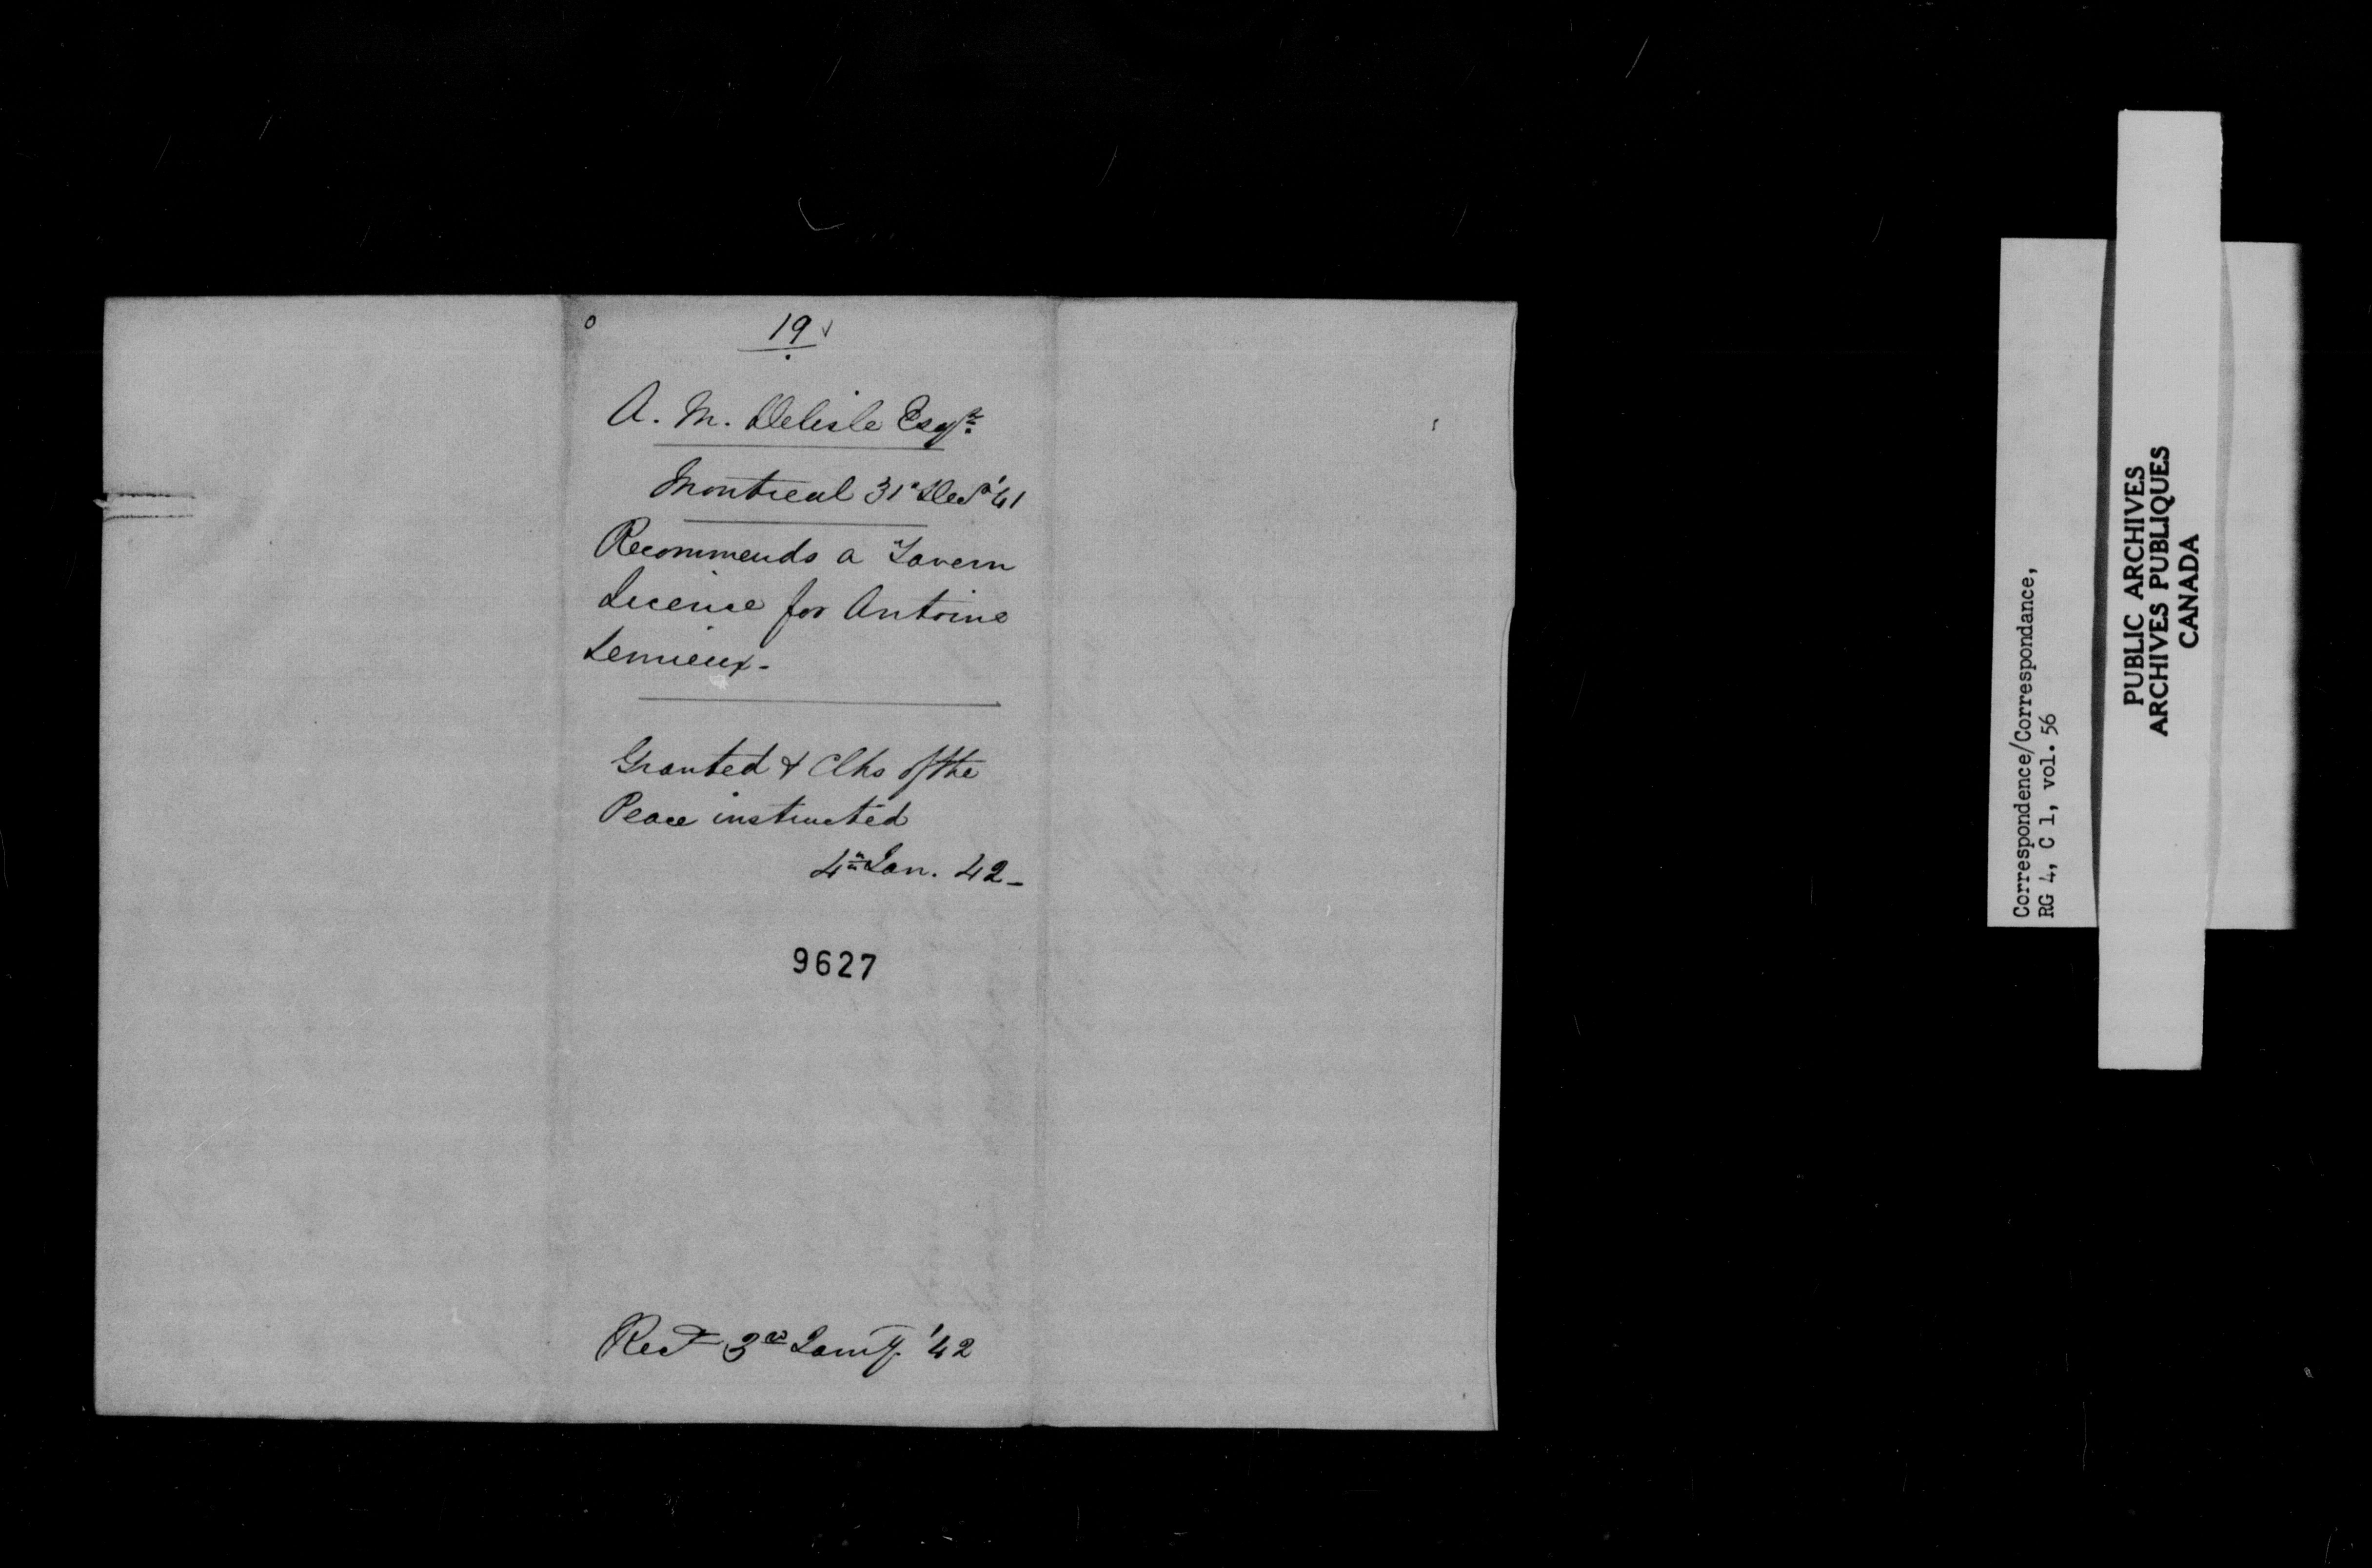 19
A. M. Delisle Esqr.
Montreal 31st Decr '41
Recommends a Tavern
License for Antoine
Lemieux-
Granted & Clks of the
Peace instructed
4th Jan. 42-
9627
Recd 3rd Jany. '42
Correspondence/Correspondance,
RG 4, C 1, vol. 56
PUBLIC ARCHIVES
ARCHIVES PUBLIQUES
CANADA